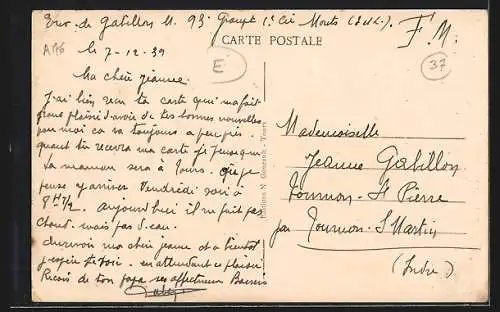 Env. de Gatillon M. 93e Groupe 1e Cie Monts (I et L).
F.M.
CARTE POSTALE
le 7-12-39
E
37
Ma chère Jeanne.
J'ai bien reçu ta carte qui m'a fait
grand plaisir d'avoir de tes bonnes nouvelles
pour moi ça va toujours a peu près.
quant tu recevra ma carte je pense que
ta maman sera à Tours.
pense y arriver Vendredi soir a
8h 1/2. aujourd'hui il ne fait pas
chaud. mais pas d'eau.
ma chère Jeanne et a bientot
te voir. en attendant ce plaisir
Recois de ton papa ses affectueux Baisers
Editions N. Tours
Mademoiselle
Jeanne Gatillon
Tournon-St Pierre
par Tournon-St Martin
(Indre)